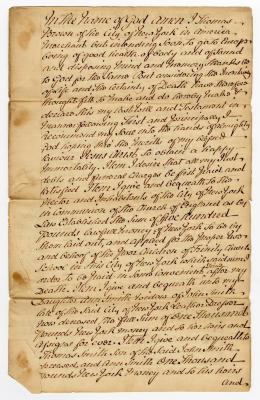 In the Name of God Amen I Thomas
of the City of New York in America
Merchant but intending soon to go to Europe
being of good health of Body and of sound
and disposing Mind and Memory thanks be
to God for the Same But considering the
of Life and the certainty of Death have therefore
thought fit to make and do hereby make &
declare this my Last Will and Testament in
manner following First and Principally I
Recommend my Soul into the hands of Almighty
God hoping thro the Merits of my Blessed
Saviour Jesus Christ to obtain a happy
Immortality. Item I desire that all my Just
debts and funeral Charges be first Paid and
Satisfied. Item I give and bequeath to the
Rector and Inhabitants of the City of New York
in Communion of the Church of England as by
Law Established the Sum of five hundred
Pounds Current money of New York to be by
them laid out and applied for the proper use
and behoof of the Poor Children of Trinity Church
School in this City of New York which said sum I
order to be Paid in some Convenient after my
Death. Item I give and bequeath unto my
Daughter Ann Smith of John Smith
late of the said City of New York Leather Dresser
now deceased the full Sum of One thousand
Pounds New York money and to her heirs and
Assigns for ever. Item I give and bequeath to
Thomas Smith Son of the Said John Smith
deceased, and Ann Smith One thousand
Pounds New York Money and to his heirs
and